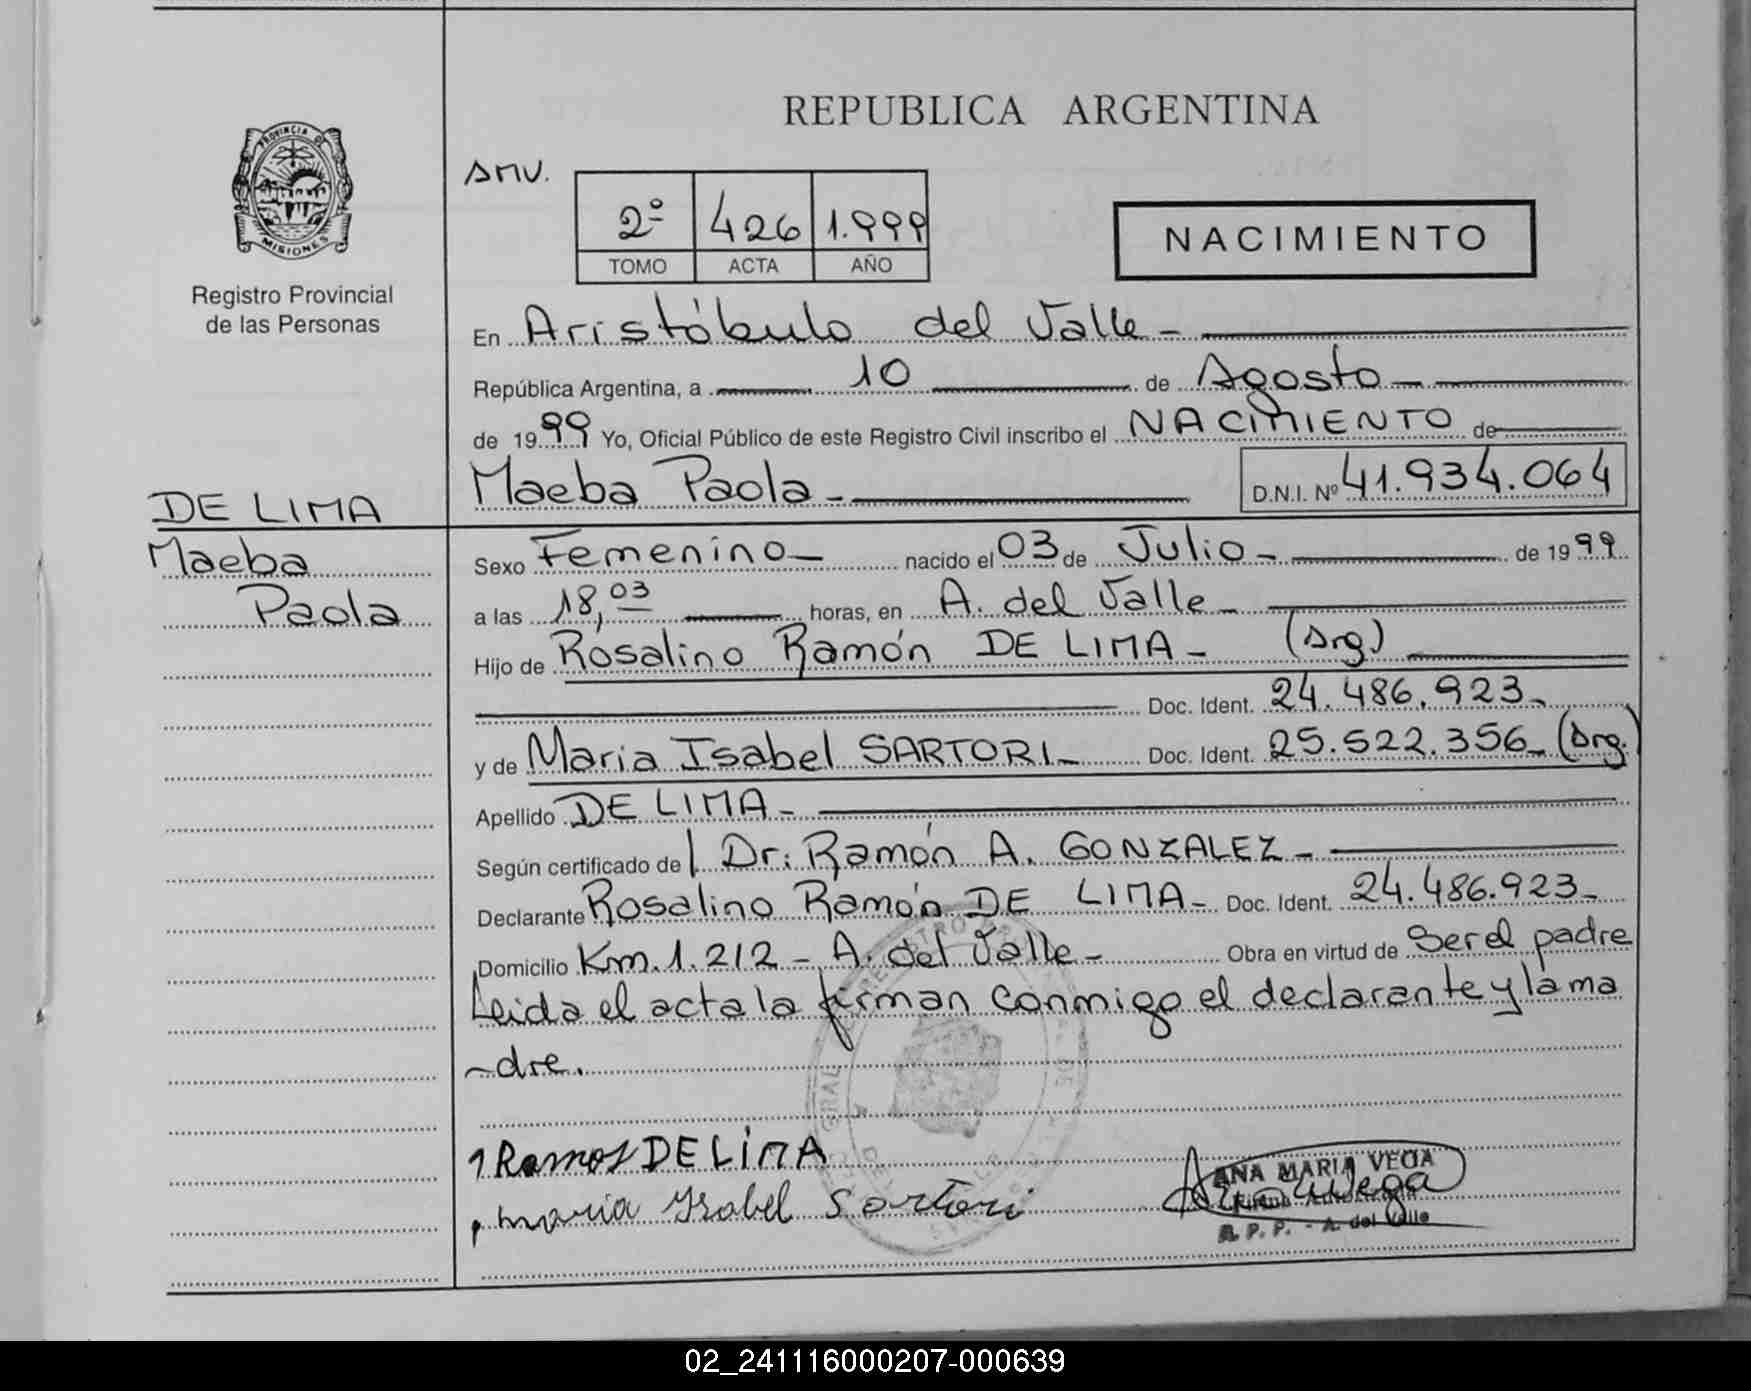 REPUBLICA ARGENTINA
PROVINCIA DE
MISIONES
Registro Provincial
de las Personas
SMV.
2º 426 1.999
TOMO ACTA AÑO
NACIMIENTO
En Aristóbulo del Valle -
República Argentina, a 10 de Agosto -
de 1999 Yo, Oficial Público de este Registro Civil inscribo el NACIMIENTO de
Maeba Paola - D.N.I. Nº 41.934.064
DE LIMA
Maeba
Paola
Sexo Femenino - nacido el 03 de Julio - de 1999
a las 18,03 horas, en A. del Valle -
Hijo de Rosalino Ramón DE LIMA - (Arg)
Doc. Ident. 24.486.923-
y de Maria Isabel SARTORI - Doc. Ident. 25.522.356- (Arg.)
Apellido DE LIMA -
Según certificado de Dr: Ramón A. GONZALEZ -
Declarante Rosalino Ramón DE LIMA - Doc. Ident. 24.486.923-
Domicilio Km. 1.212 - A. del Valle - Obra en virtud de Ser el padre
Leida el acta la firman conmigo el declarante y la ma
-dre.
Ramos DE LiMA
maria Ysabel Sartori
ANA MARIA VEGA
R. P. P. - A. del Valle
02_241116000207-000639